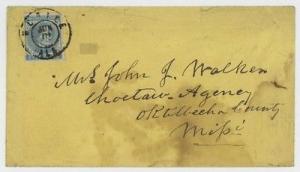 Mrs John J. Walker
Choctaw Agency
Oktibbeha County
Missi